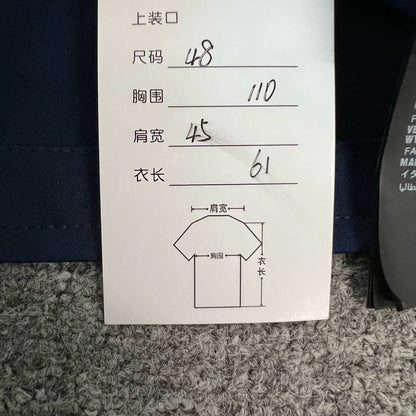 上装口
尺码 48
胸围 110
肩宽 45
衣长 61
肩宽
胸围
衣长